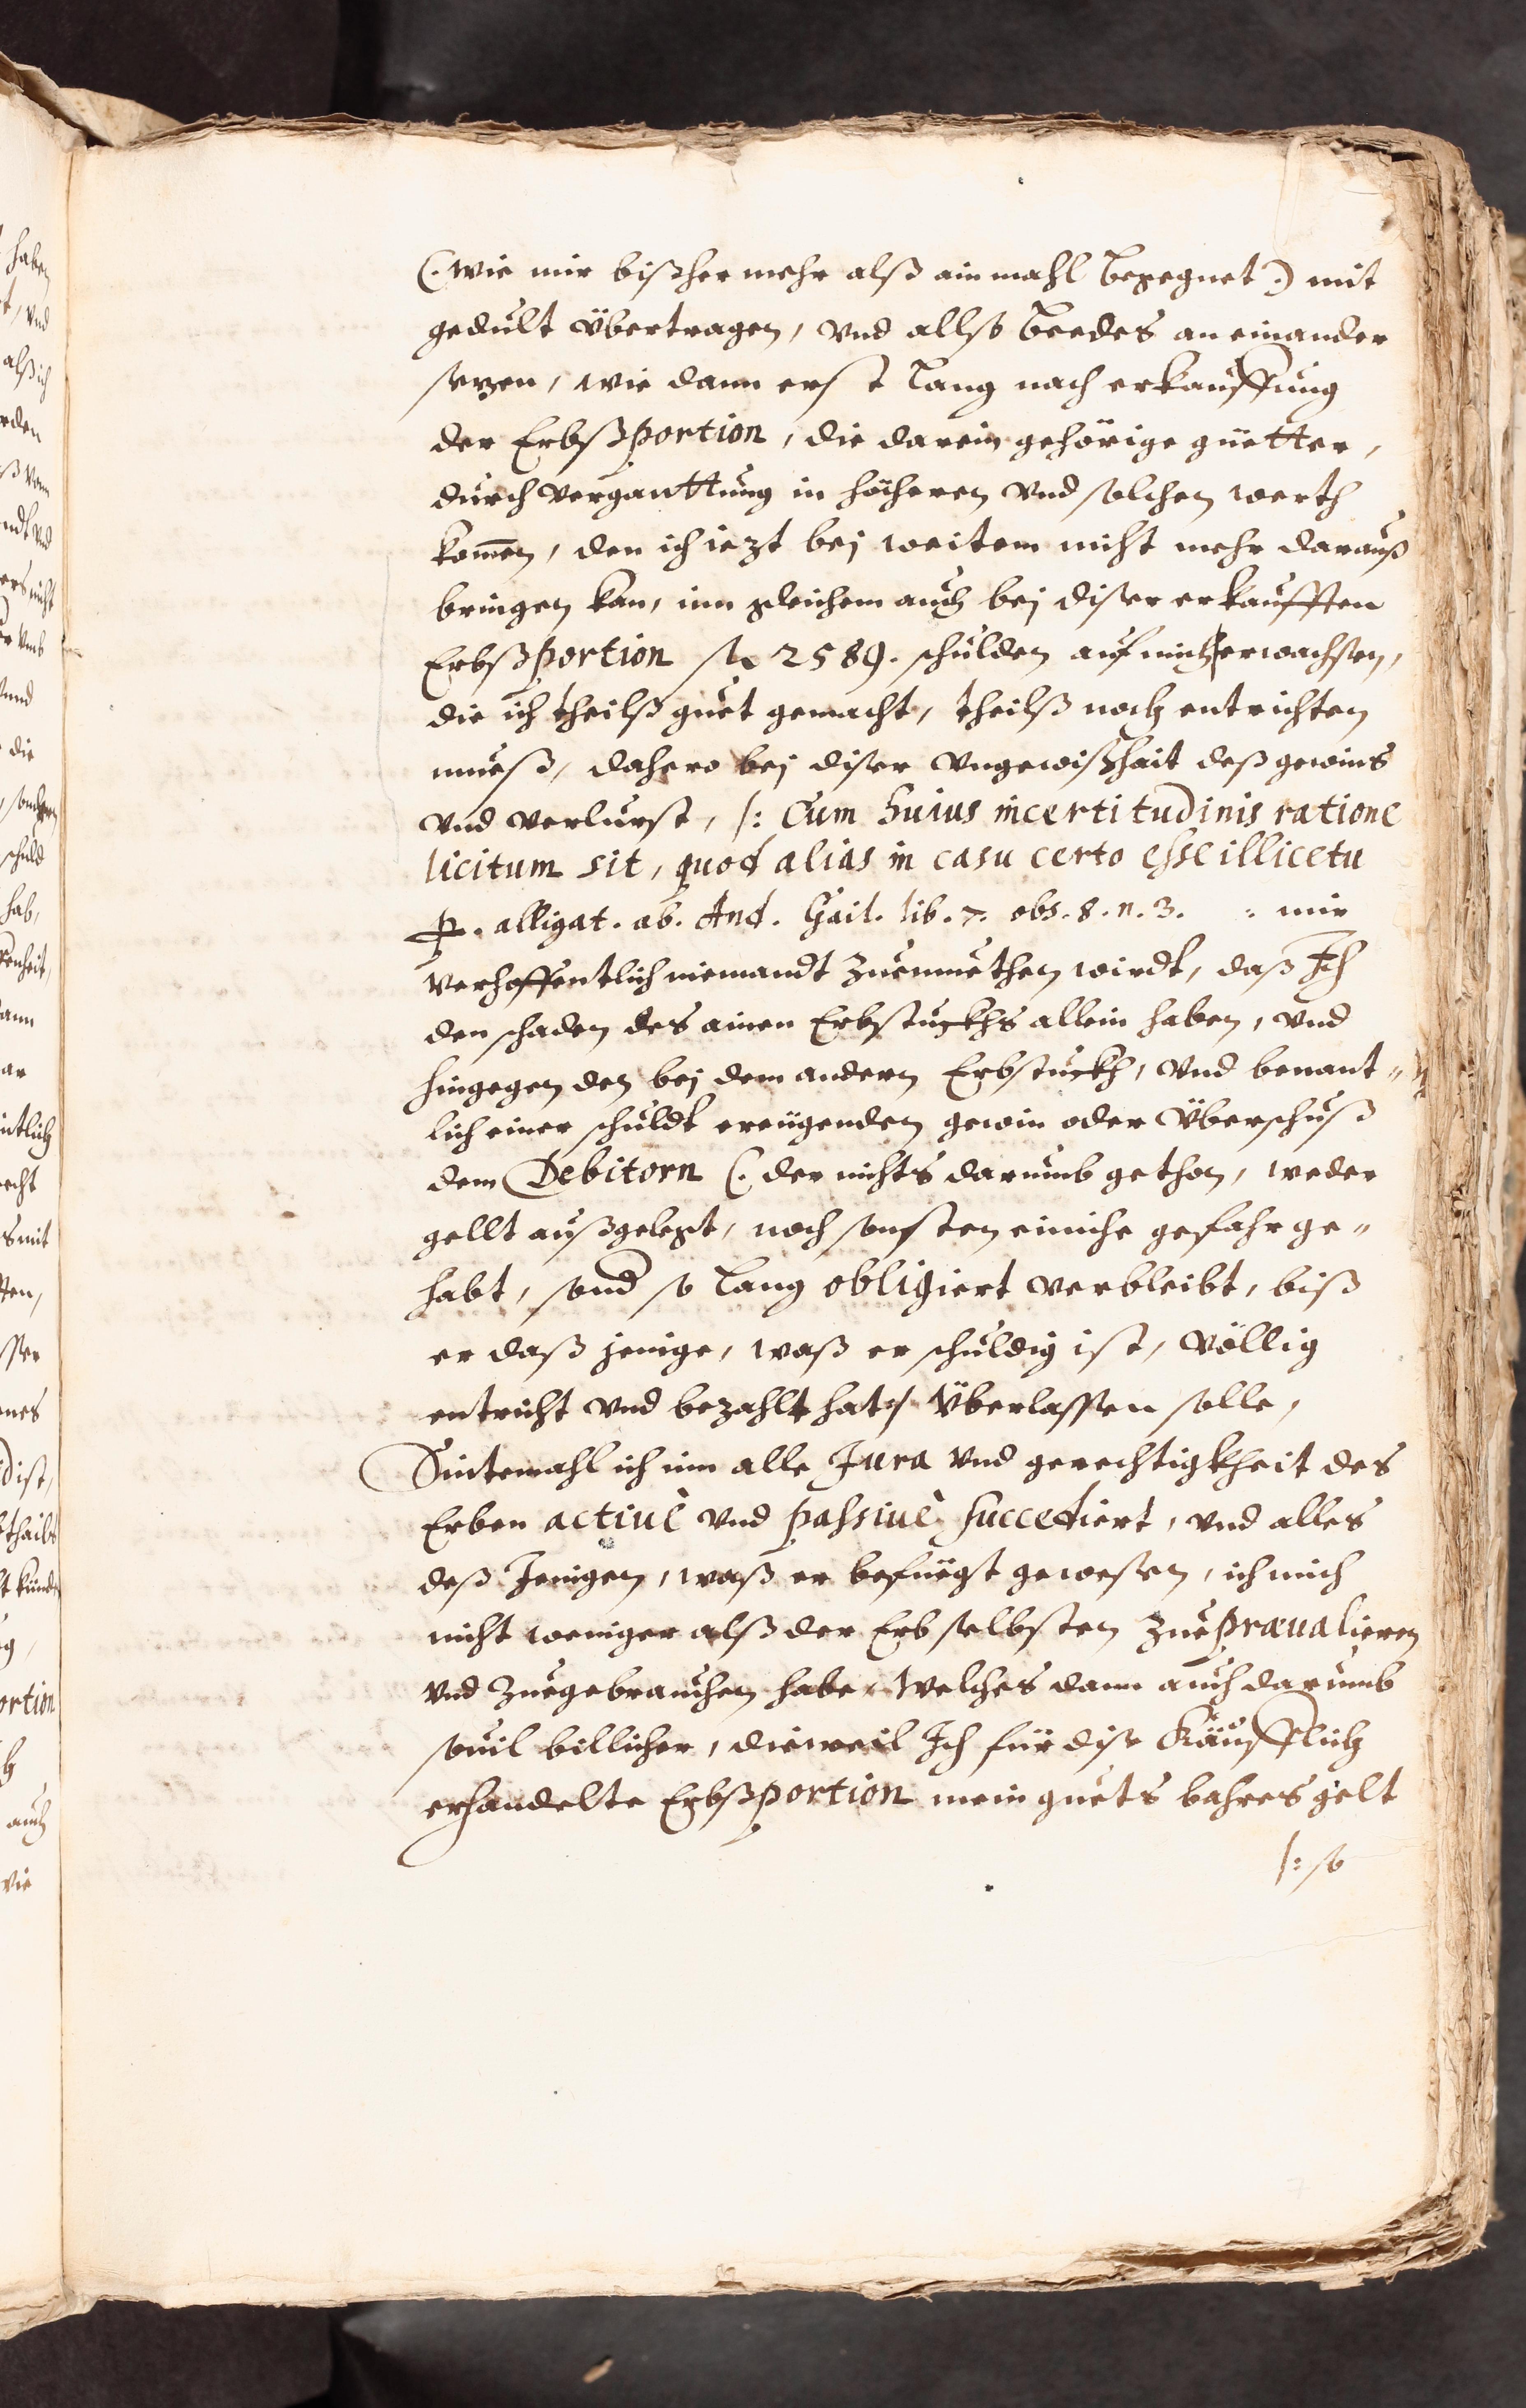 (. wie mir bißher mehr alß ain mahl begegnet .) mit
gedult übertragen, vnd allso beedes an einander
sezen, wie dann erst lang nach erkauffung
der Erbßportion, die darein gehörige güetter,
durch verganttung in höcheren vnd solchen werth
kom̄en, den ich iezt bej weitem nicht mehr darauß
bringen kan, inn gleichem auch bej diser erkaufften
Erbßportion fl 2589. schulden auf mich erwachsen,
die ich theilß guet gemacht, theilß noch entrichten
mueß, dahero bej diser vngewißhait deß gewins
vnd verlurst, /: Cum huius incertitudinis ratione
licitum sit, quod alias in casu certo esse illicetu
p. alligat. ab. And. Gail. lib. 2. obs. 8. n. 3. : mir
verhoffentlich niemandt zuemuethen wirdt, daß Ich
den schaden des ainen Erbstuckhs allein haben, vnd
hingegen den bej dem andern Erbstuckh, vnd benant„
lich einer schuldt ereügenden gewin oder überschuß
dem Debitorn (. der nichts darumb gethon, weder
gellt außgelegt, noch sonsten einiche gefahr ge„
habt, sond so lang obligiert verbleibt, biß
er daß jenige, waß er schuldig ist, völlig
entricht vnd bezahlt hat :/ überlassen solle,
Sintemahl ich inn alle Jura vnd gerechtigkheit des
Erben actiuè vnd passiuè succediert, vnd alles
deß Jenigen, waß er befüegt gewesen, ich mich
nicht weniger alß der Erb selbsten zue præualieren
vnd zuegebrauchen habe, Welches dann auch darumb
souil billicher, dieweil Ich für dise Käufflich
erhandelte Erbßportion mein guets bahres gelt
/: so